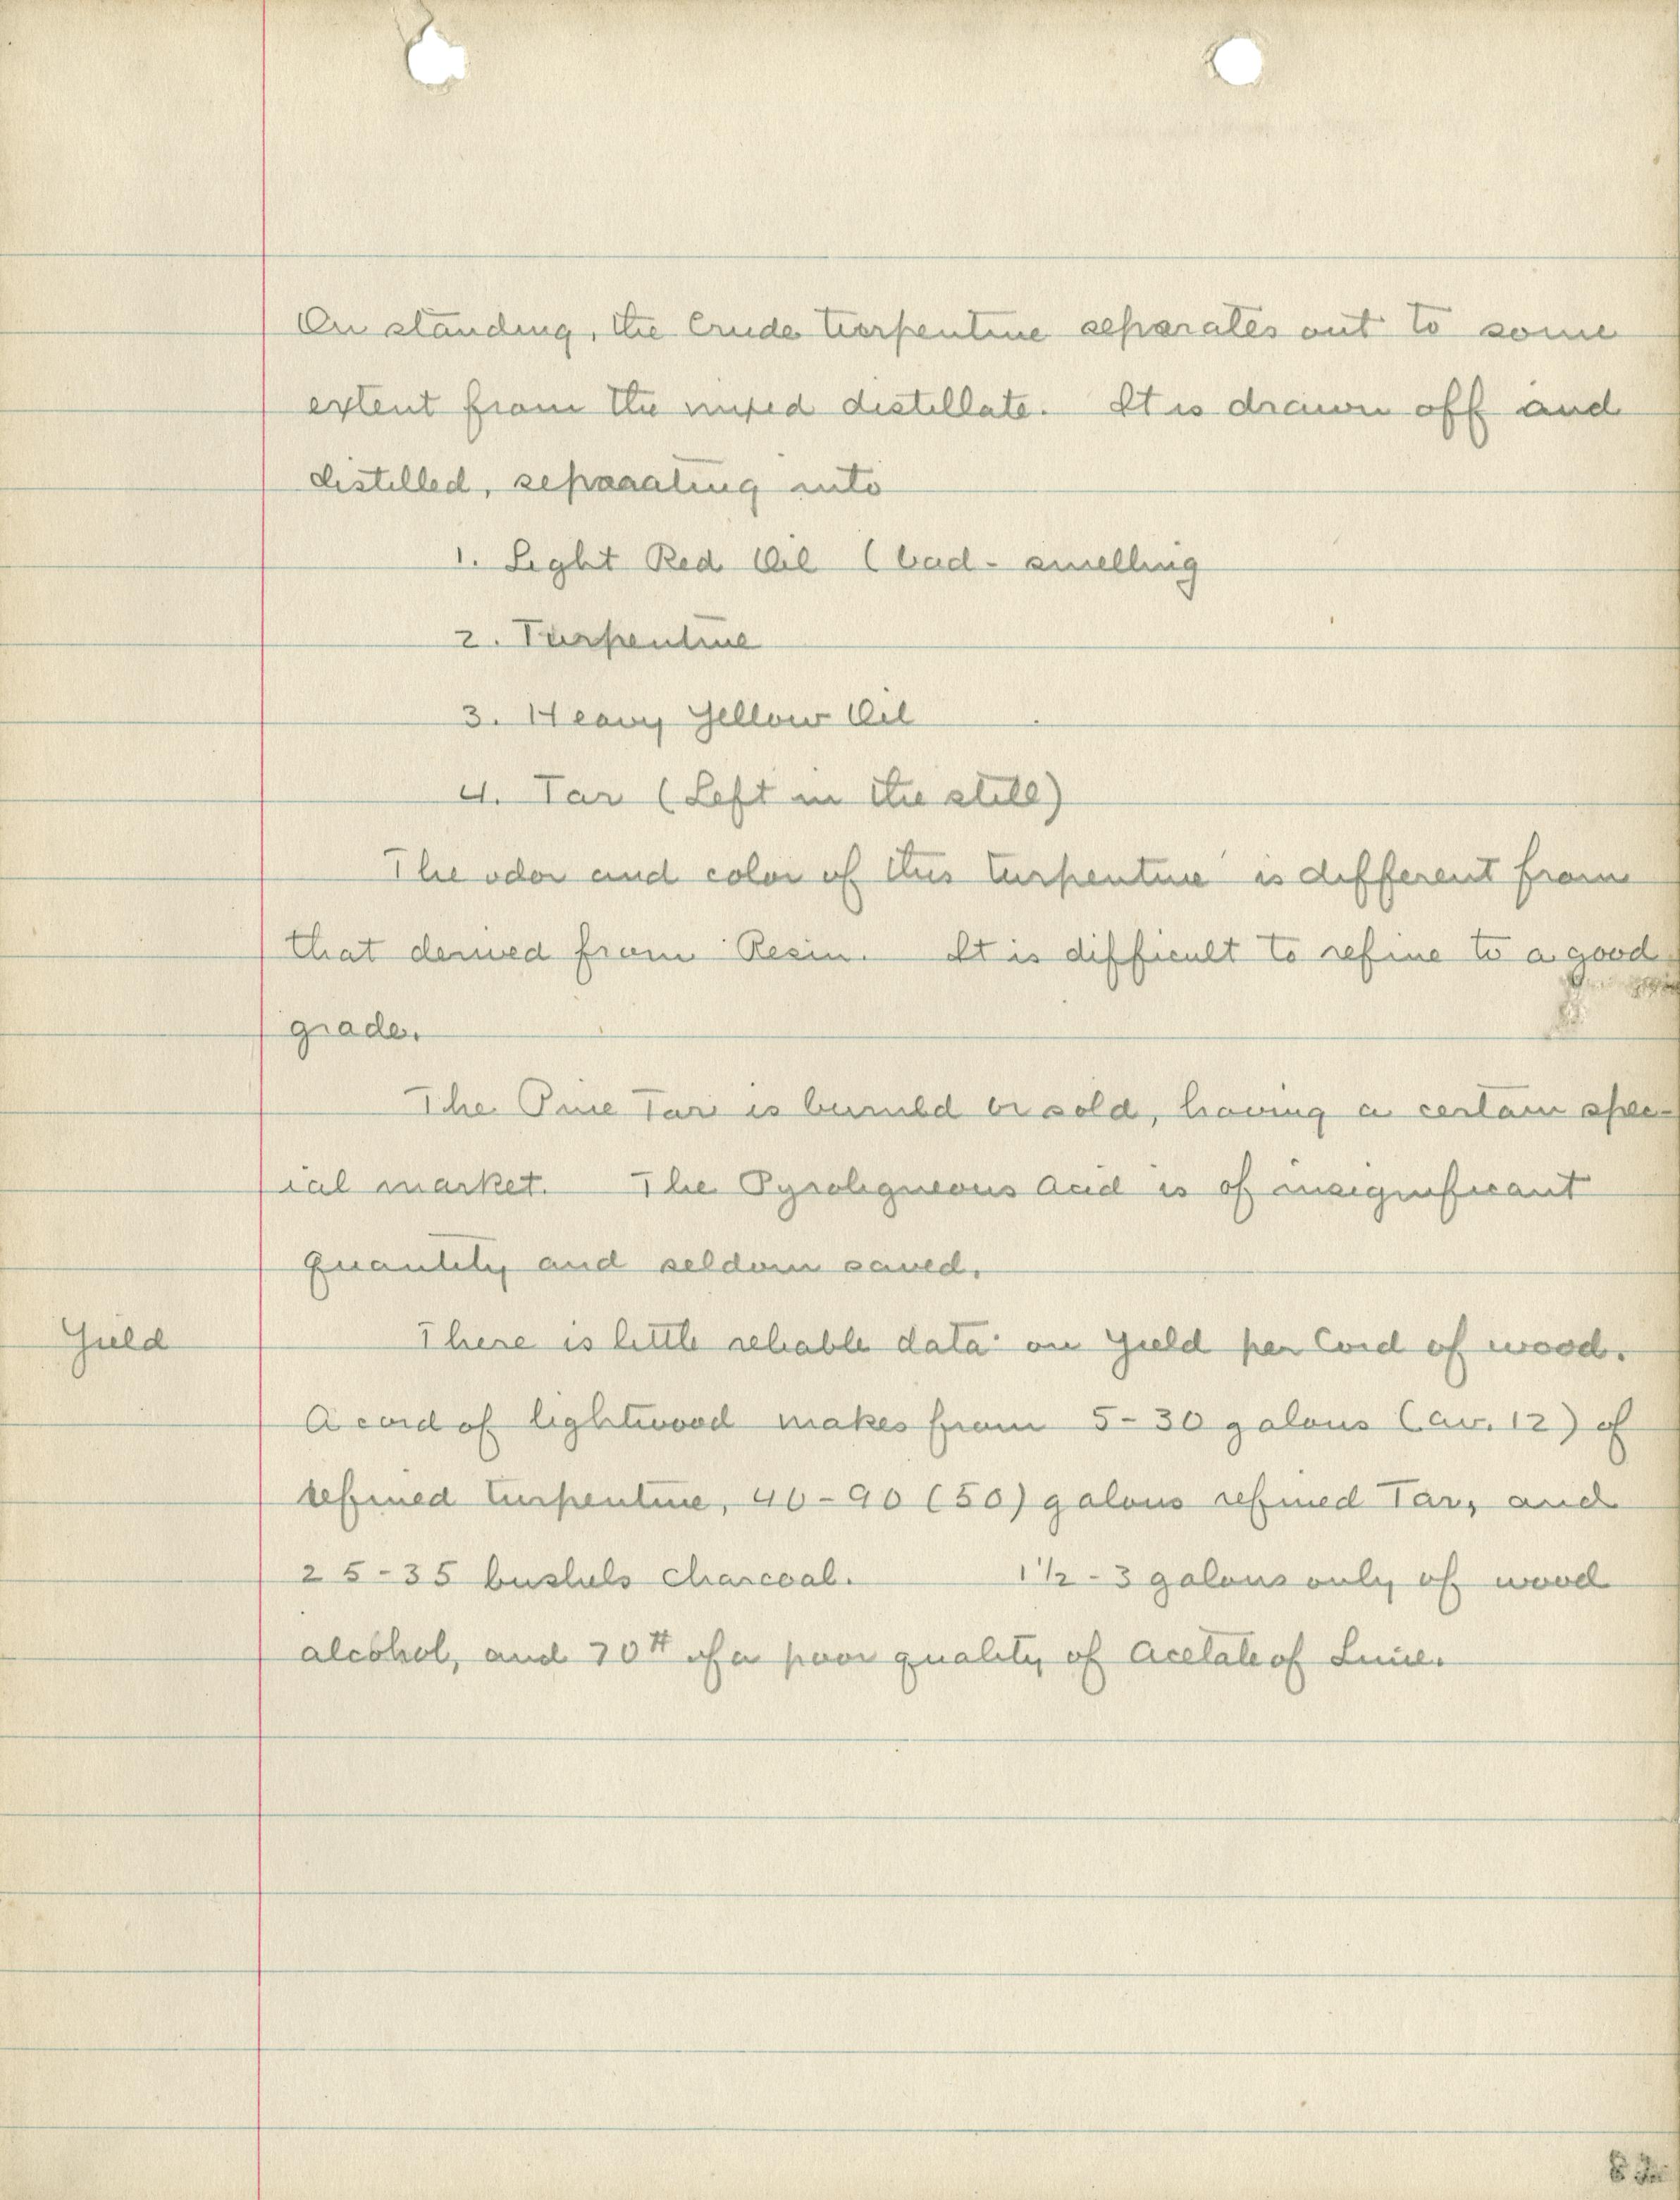 On standing, the Crude turpentine separates out to some
extent from the mixed distillate. It is drawn off and
distilled, separating into
1. Light Red Oil (bad-smelling
2. Turpentine
3. Heavy Yellow Oil
4. Tar (Left in the still)
The odor and color of this turpentine is different from
that derived from Resin. It is difficult to refine to a good
grade.
The Pine Tar is burned or sold, having a certain spec-
ial market. The Pyroligneous Acid is of insignificant
quantity and seldom saved.
Yield
There is little reliable data on yield per Cord of wood.
A cord of lightwood makes from 5-30 galons (av. 12) of
refined turpentine, 40-90 (50) galons refined Tar, and
25-35 bushels charcoal. 1 1/2 - 3 galons only of wood
alcohol, and 70# of a poor quality of Acetate of Lime.